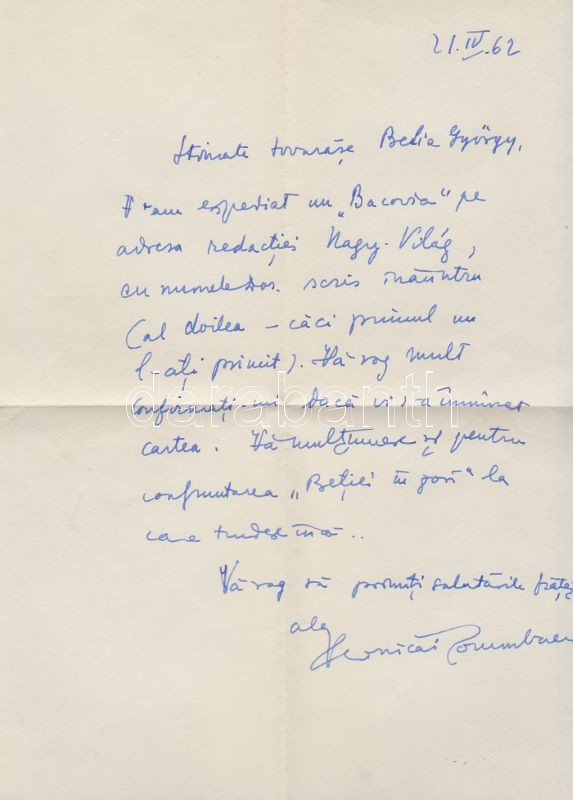 21.IV.62
Stimate tovarășe Belia György,
V-am expediat un „Bacovia" pe
adresa redacției Nagy-Világ,
cu numele Dvs. scris înăuntru
(al doilea – căci primul nu
l-ați primit). Vă rog mult
confirmați-mi dacă vi s-a înmînat
cartea. Vă mulțumesc și pentru
confruntarea „Beției în zori" la
care
Vă rog să primiți salutările
ale
Veronicăi Porumbacu
darabanth